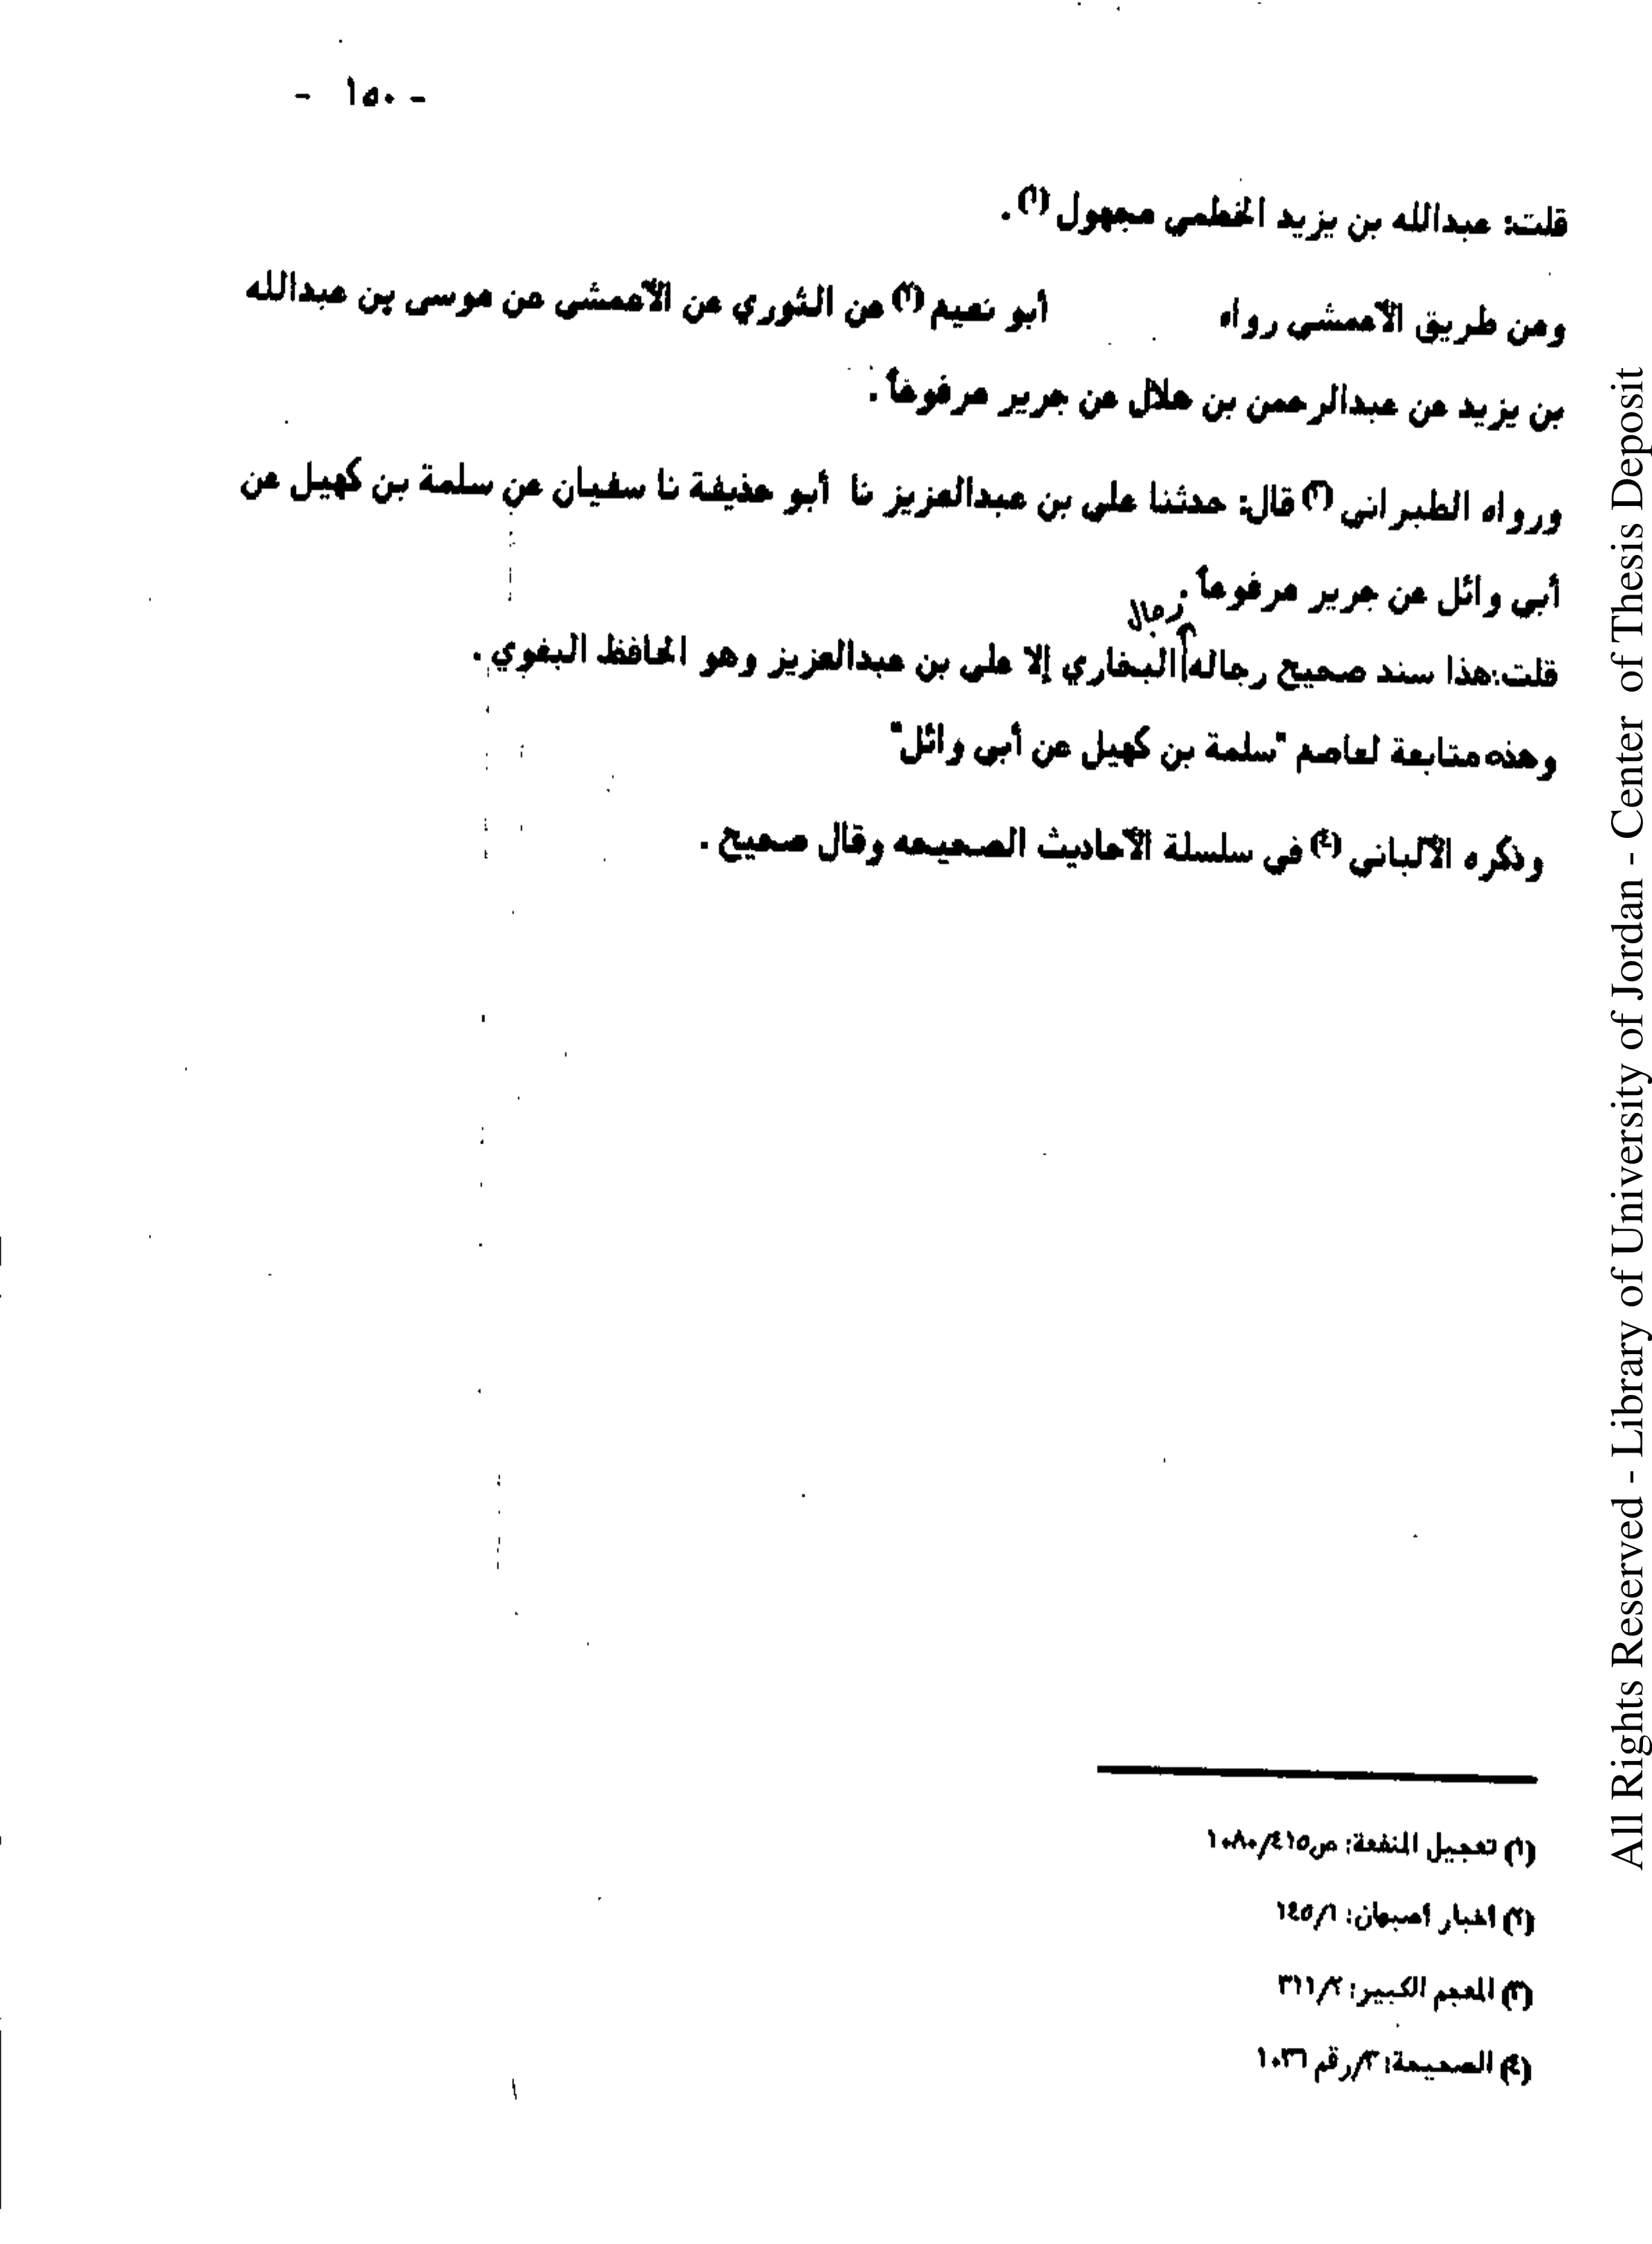 - ١٥٠ -
قلت: عبدالله بن يزيد الخطمي مجهول (١) .
ومن طريق الأعمش رواه أبو نعيم (٢) عن الثوري عن الأعمش عن موسى بن عبدالله
بن يزيد عن عبدالرحمن بن هلال عن جرير مرفوعاً .
ورواه الطبراني (٣) قال: حدثنا علي بن عبدالعزيز نا أبو حذيفة نا سفيان عن سلمة بن كهيل عن
أبي وائل عن جرير مرفوعاً .
رجال
قلت:هذا سند صحيح رجاله البخاري إلا علي بن عبدالعزيز وهو الحافظ البغوي .
وهذه متابعة لعاصم "سلمة بن كهيل عن أبي وائل"
وذكره الألباني (٤) في سلسلة الأحاديث الصحيحه وقال صحيح .
(١) تعجيل المنفعة: ص٤١٥/١٠٨٠
(٢) اخبار اصبهان: ١/١٤٥
(٣) المعجم الكبير: ٢/٣١١
(٤) الصحيحة: ٣/رقم ١٠٣٦
All Rights Reserved - Library of University of Jordan - Center of Thesis Deposit